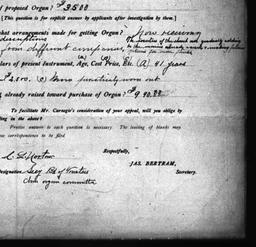 of proposed Organ? $3500
[This question is for explicit answer by applicants after investigation by them.]
what arrangements made for getting Organ? Now receiving
descriptions
from different companies.
lars of present Instrument, Age, Cost Price, Etc. (a) 41 years
$2,800. (c) Now practically worn out
already raised toward purchase of Organ? $940.00
To facilitate Mr. Carnegie's consideration of your appeal, will you oblige by
ling in the above?
Precise answer to each question is necessary. The leaving of blanks may
ve correspondence to be filed
Respectfully,
JAS. BERTRAM,
Secretary.
Designation Secy Bd of Trustees
Chm organ committee